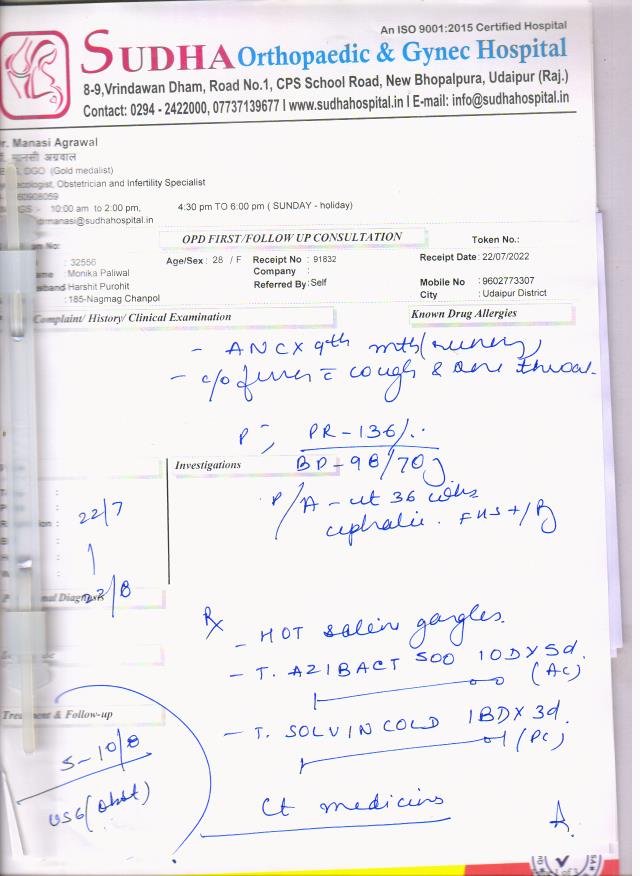 An ISO 9001:2015 Certified Hospital
SUDHA Orthopaedic & Gynec Hospital
8-9,Vrindawan Dham, Road No.1, CPS School Road, New Bhopalpura, Udaipur (Raj.)
Contact: 0294 - 2422000, 07737139677 I www.sudhahospital.in I E-mail: info@sudhahospital.in
r. Manasi Agrawal
मानसी अग्रवाल
DGO (Gold medalist)
ecologist, Obstetrician and Infertility Specialist
60908059
GS - 10:00 am to 2:00 pm, 4:30 pm TO 6:00 pm ( SUNDAY - holiday)
drmanasi@sudhahospital.in
OPD FIRST/FOLLOW UP CONSULTATION
Token No.:
No:
: 32556 Age/Sex : 28 / F Receipt No : 91832 Receipt Date : 22/07/2022
me : Monika Paliwal Company :
sband Harshit Purohit Referred By : Self Mobile No : 9602773307
: 185-Nagmag Chanpol City : Udaipur District
Complaint/ History/ Clinical Examination
Known Drug Allergies
- ANC X 9th mth
- c/o fever c cough & sore throat.
PR - 136/..
BP - 98/70
Investigations
P/A - ut 36 wks
cephalic. FHS +/R
22/7
22/8
nal Diagnosis
Rx
- HOT saline gargles.
- T. AZIBACT 500 1OD X 5d.
(AC)
- T. SOLVIN COLD 1BD X 3d.
(PC)
Treatment & Follow-up
S - 10/8
USG (obst)
Ct medicins
Page 1 of 3